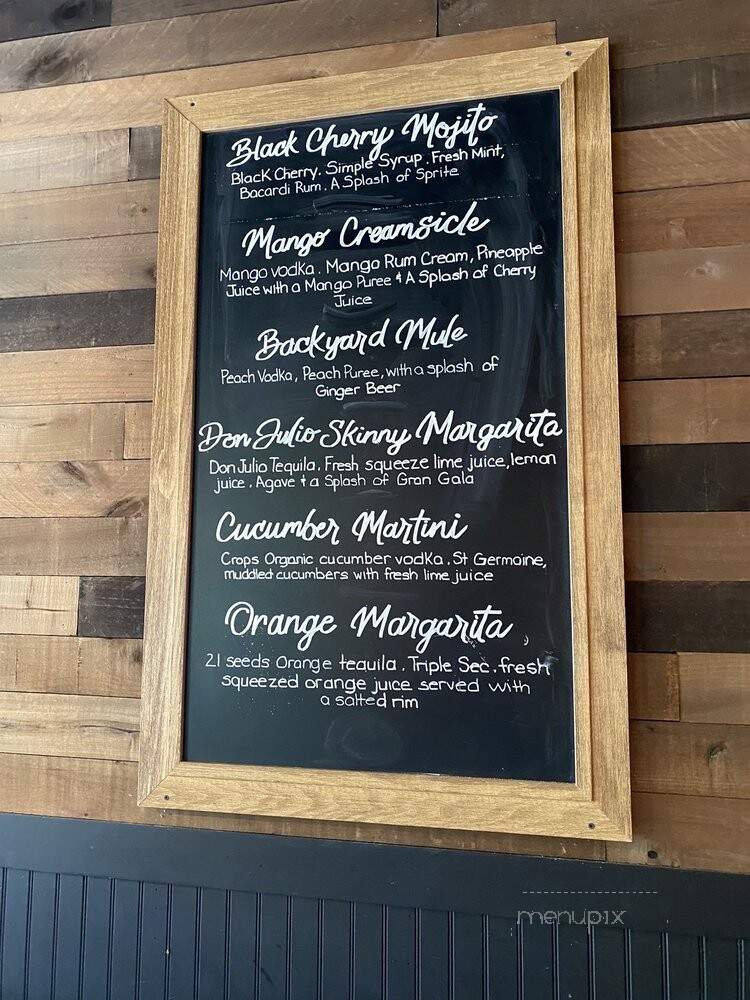 Black Cherry Mojito
Black Cherry. Simple Syrup. Fresh Mint,
Bacardi Rum. A Splash of Sprite
Mango Creamsicle
Mango vodka. Mango Rum Cream, Pineapple
Juice with a Mango Puree & A Splash of Cherry
Juice
Backyard Mule
Peach Vodka, Peach Puree, with a splash of
Ginger Beer
Don Julio Skinny Margarita
Don Julio Tequila. Fresh squeeze lime juice, lemon
juice. Agave & a Splash of Gran Gala
Cucumber Martini
Crops Organic cucumber vodka. St Germaine,
muddled cucumbers with fresh lime juice
Orange Margarita
21 seeds Orange teauila. Triple Sec. fresh
squeezed orange juice served with
a salted rim
menupix